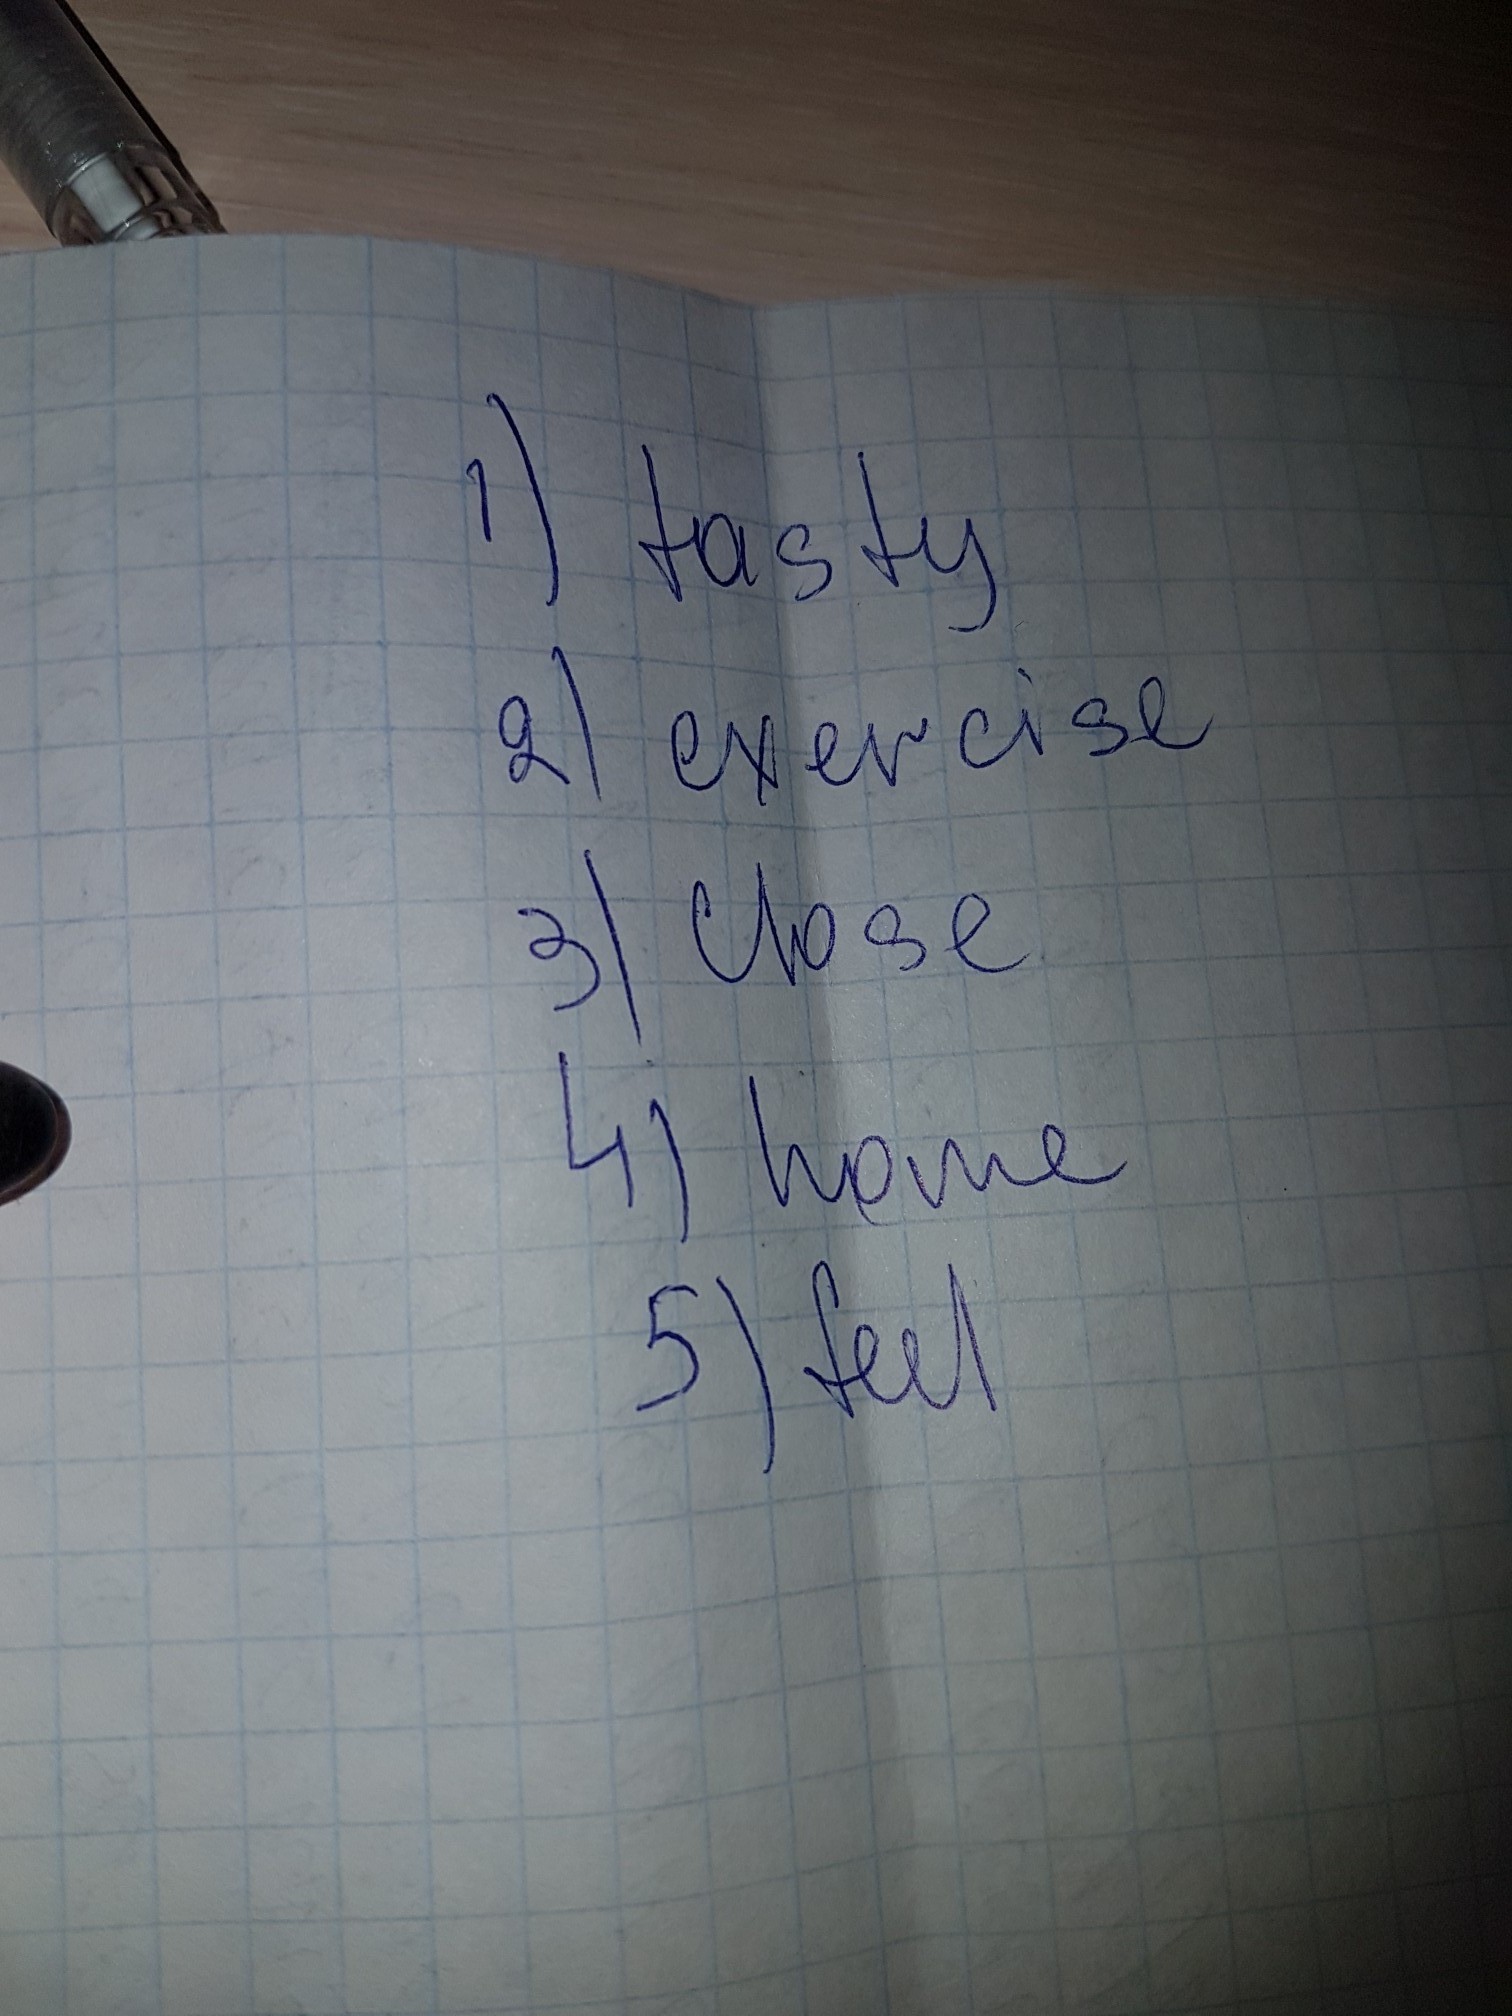 1) tasty
2) exercise
3) close
4) home
5) feel